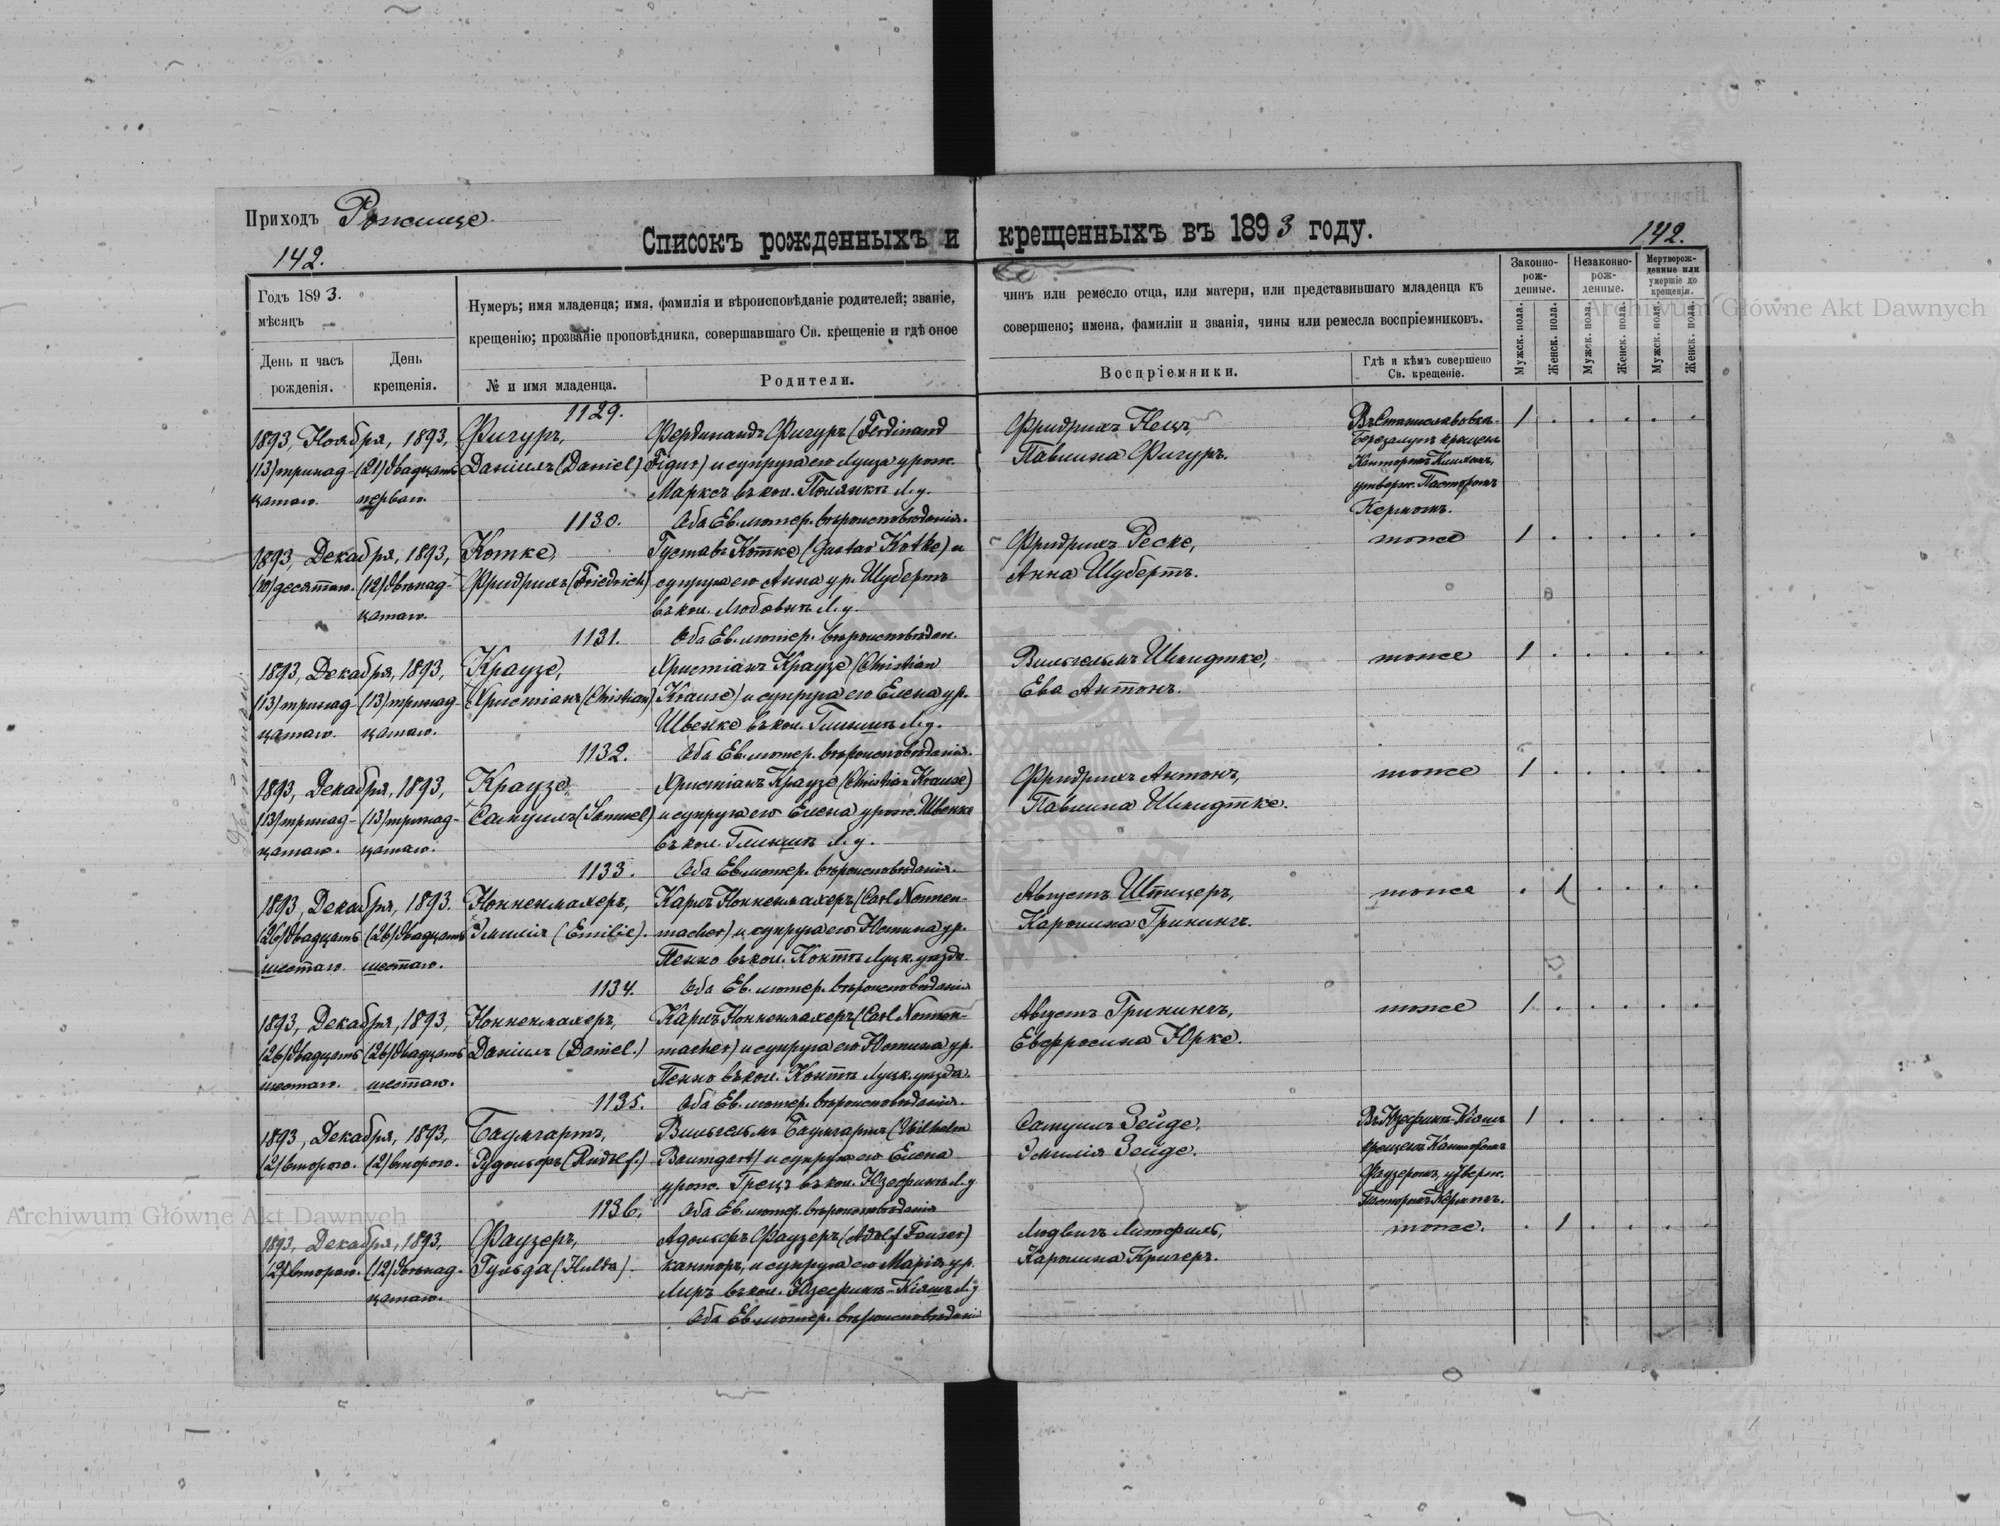 Приходъ Рожище.
142.
Списокъ рожденныхъ и крещенныхъ въ 1893 году.
142.
Годъ 1893.
мѣсяцъ
День и часъ рожденія.
День крещенія.
Нумеръ; имя младенца; имя, фамилія и вѣроисповѣданіе родителей; званіе,
крещенію; прозваніе проповѣдника, совершавшаго Св. крещеніе и гдѣ оное
№ и имя младенца.
Родители.
чинъ или ремесло отца, или матери, или представившаго младенца къ
совершено; имена, фамиліи и званія, чины или ремесла воспріемниковъ.
Воспріемники.
Гдѣ и кѣмъ совершено
Св. крещеніе.
Законно-
рож-
денные.
Незаконно-
рож-
денные.
Мертворож-
денные или
умершіе до
крещенія.
Мужск. пола.
Женск. пола.
Мужск. пола.
Женск. пола.
Мужск. пола.
Женск. пола.
1129.
1893, Ноября, 1893,
(13) тринад- (21) двадцать
цатаго. перваго.
Фигуръ,
Даніилъ (Daniel)
Фердинандъ Фигуръ (Ferdinand
Figur) и супруга его Луиза урож.
Марксъ въ кол. Полянкѣ Л. у.
Оба Ев. лютер. вѣроисповѣданія.
Фридрихъ Нецъ,
Павлина Фигуръ.
Въ Станиславовкѣ-
крещенъ
Канторомъ
утверж. Пасторомъ
Кермомъ.
1
1130.
1893, Декабря, 1893,
(10) десятаго. (12) двѣнад-
цатаго.
Котке,
Фридрихъ (Friedrich)
Густавъ Котке (Gustav Kotke) и
супруга его Анна ур. Шубертъ
въ кол. Любовнѣ Л. у.
Оба Ев. лютер. вѣроисповѣдан.
Фридрихъ Реске,
Анна Шубертъ.
тоже
1
1131.
1893, Декабря, 1893,
(13) тринад- (13) тринад-
цатаго. цатаго.
Краузе,
Христіанъ (Christian)
Христіанъ Краузе (Christian
Krause) и супруга его Елена ур.
Швенке въ кол. Глинищѣ Л. у.
Оба Ев. лютер. вѣроисповѣданія.
Вильгельмъ Шмидтке,
Ева Антонъ.
тоже
1
1132.
1893, Декабря, 1893,
(13) тринад- (13) тринад-
цатаго. цатаго.
Краузе,
Самуилъ (Samuel)
Христіанъ Краузе (Christian Krause)
и супруга его Елена урож. Швенке
въ кол. Глинищѣ Л. у.
Оба Ев. лютер. вѣроисповѣданія.
Фридрихъ Антонъ,
Павлина Шмидтке.
тоже
1
1133.
1893, Декабря, 1893.
(26) двадцать (26) двадцать
шестаго. шестаго.
Нонненмахеръ,
Эмилія (Emilie).
Карлъ Нонненмахеръ (Carl Nonnen-
macher) и супруга его Юстина ур.
Пенно въ кол. Контѣ Луцк. уѣзда.
Оба Ев. лютер. вѣроисповѣданія
Августъ Штицеръ,
Каролина Гринингъ.
тоже
1
1134.
1893, Декабря, 1893,
(26) двадцать (26) двадцать
шестаго. шестаго.
Нонненмахеръ,
Даніилъ (Daniel.)
Карлъ Нонненмахеръ (Carl Nonnen-
macher) и супруга его Юстина ур.
Пенно въ кол. Контѣ Луцк. уѣзда.
Оба Ев. лютер. вѣроисповѣданія.
Августъ Гринингъ,
Евфросина Юрке.
тоже
1
1135.
1893, Декабря, 1893,
(2) второго. (2) второго.
Баумгартъ,
Рудольфъ (Rudolf.)
Вильгельмъ Баумгартъ (Wilhelm
Baumgart) и супруга его Елена
урож. Грецъ въ кол. Юзефинѣ Л. у
Оба Ев. лютер. вѣроисповѣданія
Самуилъ Зейде,
Эмилія Зейде.
Въ Юзефинѣ-
крещенъ Канторомъ
Фаузеромъ, утверж.
Пасторомъ Кермомъ.
1
1136.
1893, Декабря, 1893,
(2) второго. (12) двѣнад-
цатаго.
Фаузеръ,
Гульда (Hulda).
Адольфъ Фаузеръ (Adolf Fauser)
канторъ, и супруга его Марія ур.
Лиръ въ кол. Юзефинѣ- Л. у
Оба Ев. лютер. вѣроисповѣданія
Людвигъ Литфинъ,
Каролина Кригеръ.
тоже.
1
Archiwum Główne Akt Dawnych
Archiwum Główne Akt Dawnych